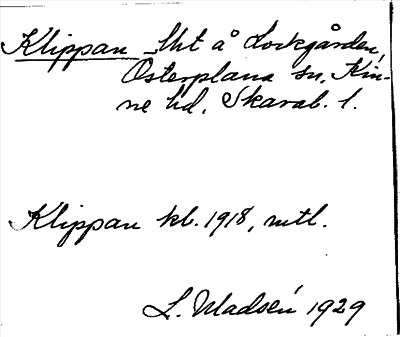 Klippan lht å Lockgården,
Österplana sn, Kin-
ne hd. Skarab. l.
Klippan kb. 1918, mtl.
L. Madsén 1929